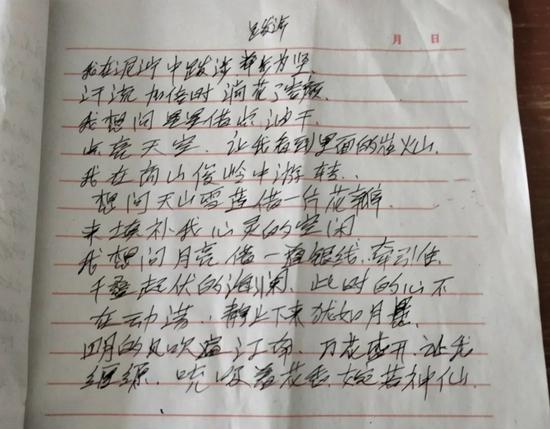 月 日
我在泥泞中跋涉 举步为坚
汗流加倍时 淌花了容颜
我想问星星借点油干
点亮天空 让我看到里面的岩火山
我在高山俊岭中游转
想问天山雪莲借一片花瓣
来填补我心灵的空闲
我想问月亮借一根银线 牵引住
千叠起伏的海澜 此时的心不
在动荡 静止下来犹如月
四月的风吹 江南 万花 开 让我
吮吸着花香 宛若神仙